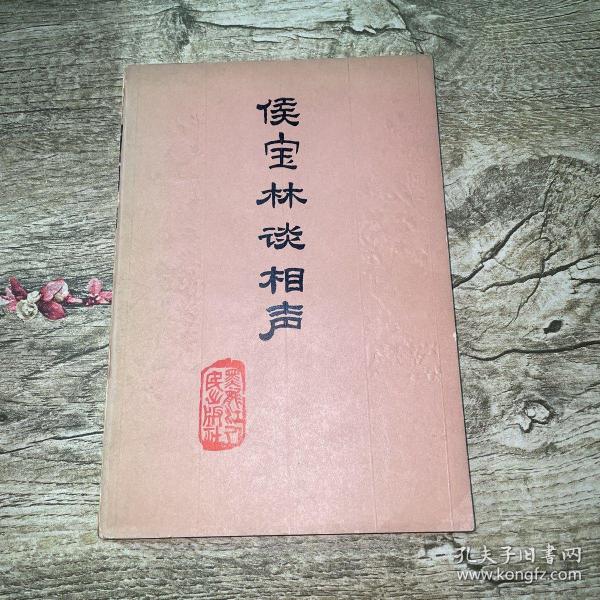 侯宝林谈相声
黑龙江人
民出版社
孔夫子旧书网
www.kongfz.com